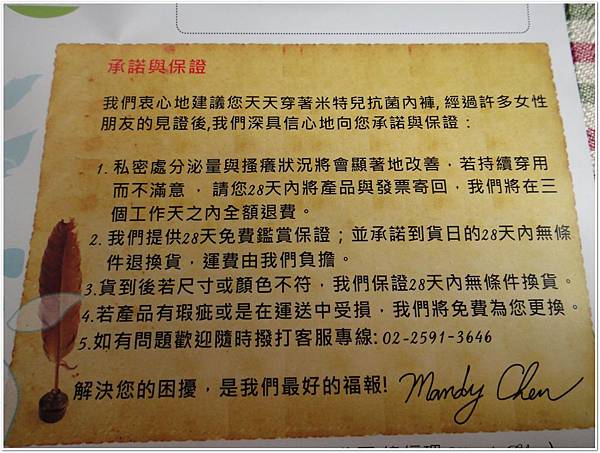 承諾與保證
我們衷心地建議您天天穿著米特兒抗菌內褲, 經過許多女性
朋友的見證後,我們深具信心地向您承諾與保證：
1. 私密處分泌量與搔癢狀況將會顯著地改善，若持續穿用
而不滿意 ， 請您28天內將產品與發票寄回，我們將在三
個工作天之內全額退費。
2. 我們提供28天免費鑑賞保證；並承諾到貨日的28天內無條
件退換貨，運費由我們負擔。
3.貨到後若尺寸或顏色不符，我們保證28天內無條件換貨。
4.若產品有瑕疵或是在運送中受損，我們將免費為您更換。
5.如有問題歡迎隨時撥打客服專線: 02-2591-3646
解決您的困擾，是我們最好的福報!
Mandy Chen